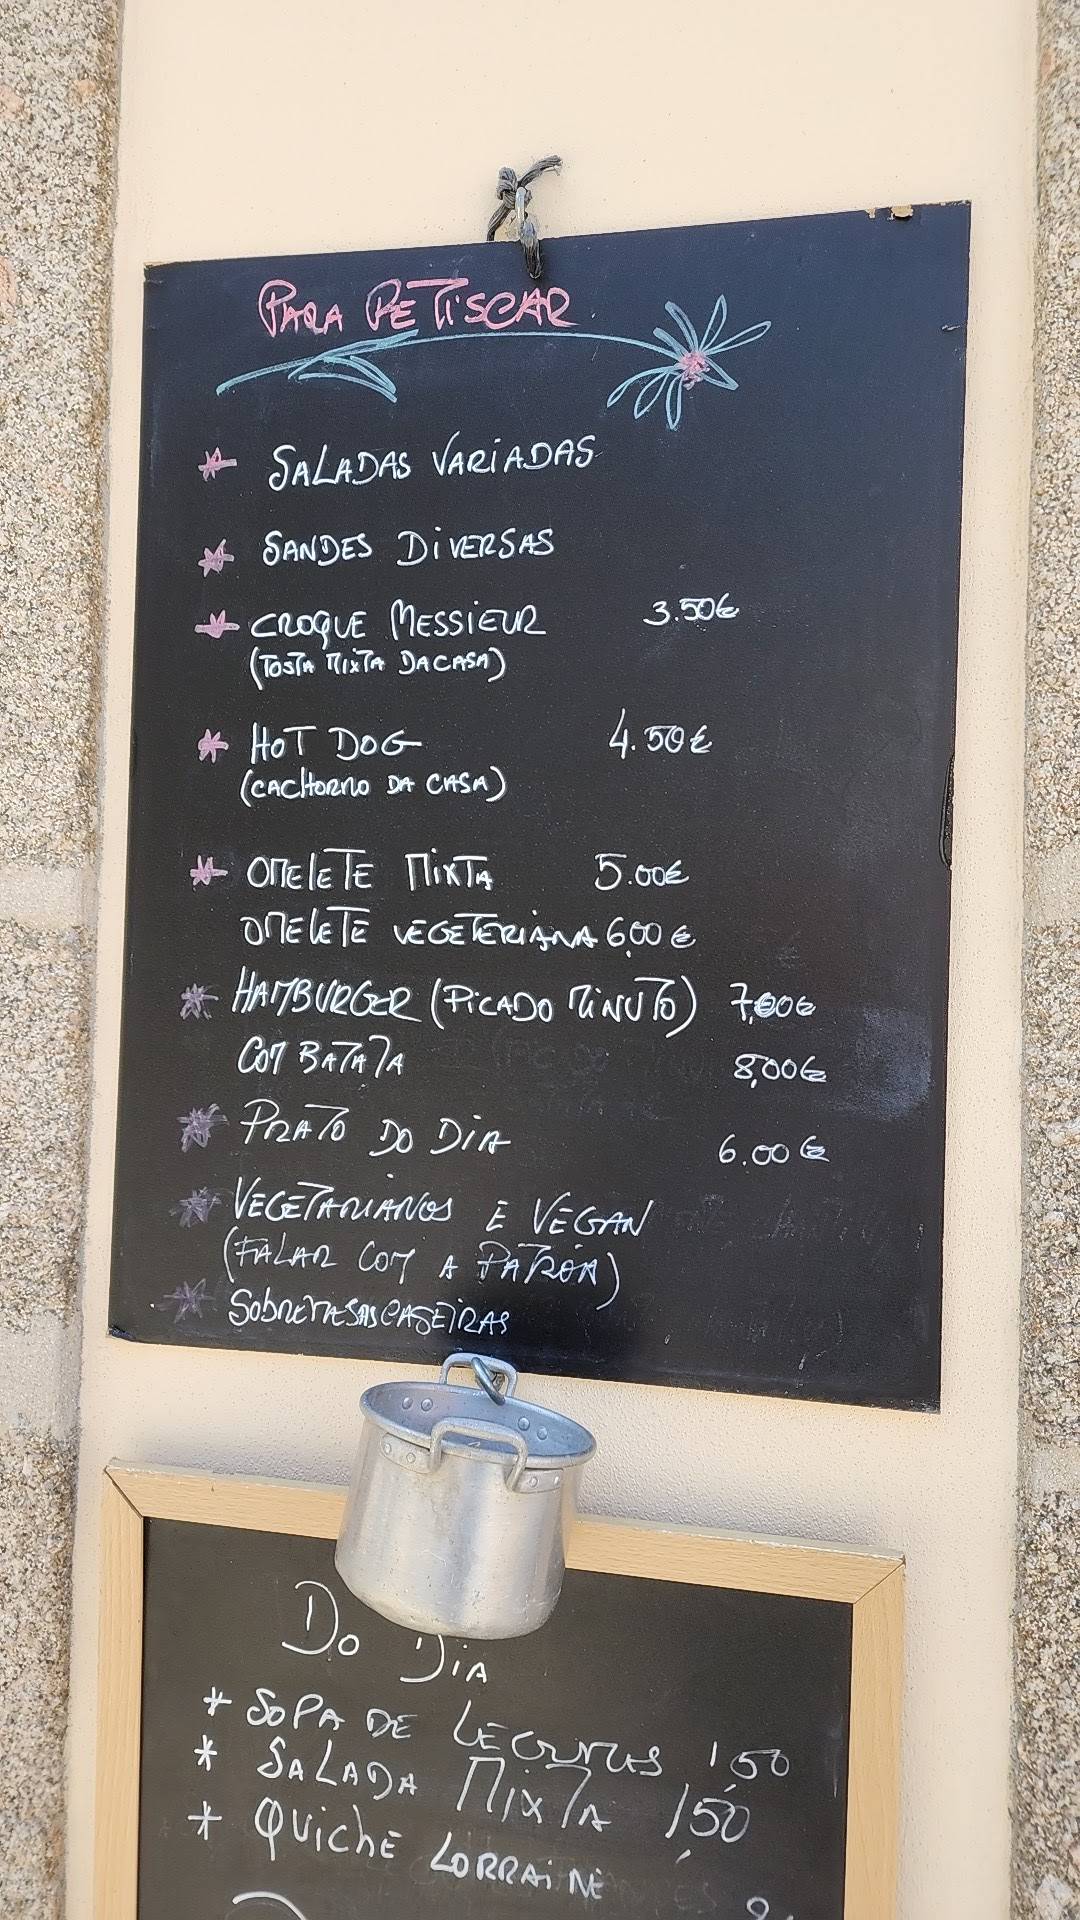 PARA PETISCAR
* SALADAS VARIADAS
* SANDES DIVERSAS
* CROQUE MESSIEUR 3.50€
(TOSTA MIXTA DA CASA)
* HOT DOG 4.50€
(CACHORRO DA CASA)
* OMELETE MIXTA 5.00€
OMELETE VEGETERIANA 6,00€
* HAMBURGER (PICADO MINUTO) 7,00€
COM BATATA 8,00€
* PRATO DO DIA 6.00€
* VEGETARIANOS E VEGAN
(FALAR COM A PATROA)
* SOBREMESAS CASEIRAS
DO DIA
* SOPA DE LEGUMES 1,50
* SALADA MIXTA 1,50
* QUICHE LORRAINE